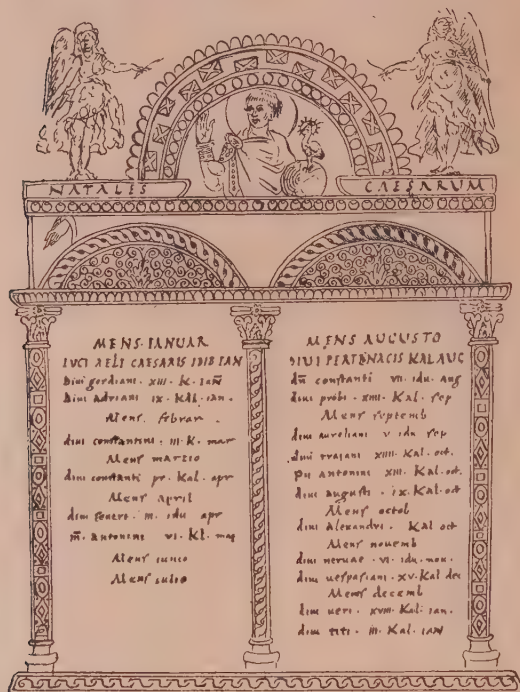 NATALES CAESARUM
MENS·IANUAR
LUCI AELI CAESARIS IDIB IAN
Diui gordiani · XIII · K · IAN
Diui adriani IX · KAL · IAN ·
Mens · februar ·
diui constantini · III · K · mar
Mens martio
diui constanti pr · Kal · apr
Mens April
diui seueri · III · idu apr
m̄ · antonini VI · Kl · mag
Mens iunio
Mens iulio
MENS AUGUSTO
DIUI PERTINACIS KAL AUG
dn̄ constanti VII · idu · aug
diui probi · XIIII · Kal · sep
Mens septemb
diui aureliani V idu sep
diui traiani XIIII Kal · oct ·
pii antonini XIII · Kal · oct ·
diui augusti · IX · Kal · oct
Mens octob
diui Alexandri · Kal oct
Mens nouemb
diui neruae · VI · idu · nou ·
diui uespasiani · XV · Kal dec
Mens decemb
diui ueri · XVIII · Kal · ian ·
diui titi · III · Kal · ian